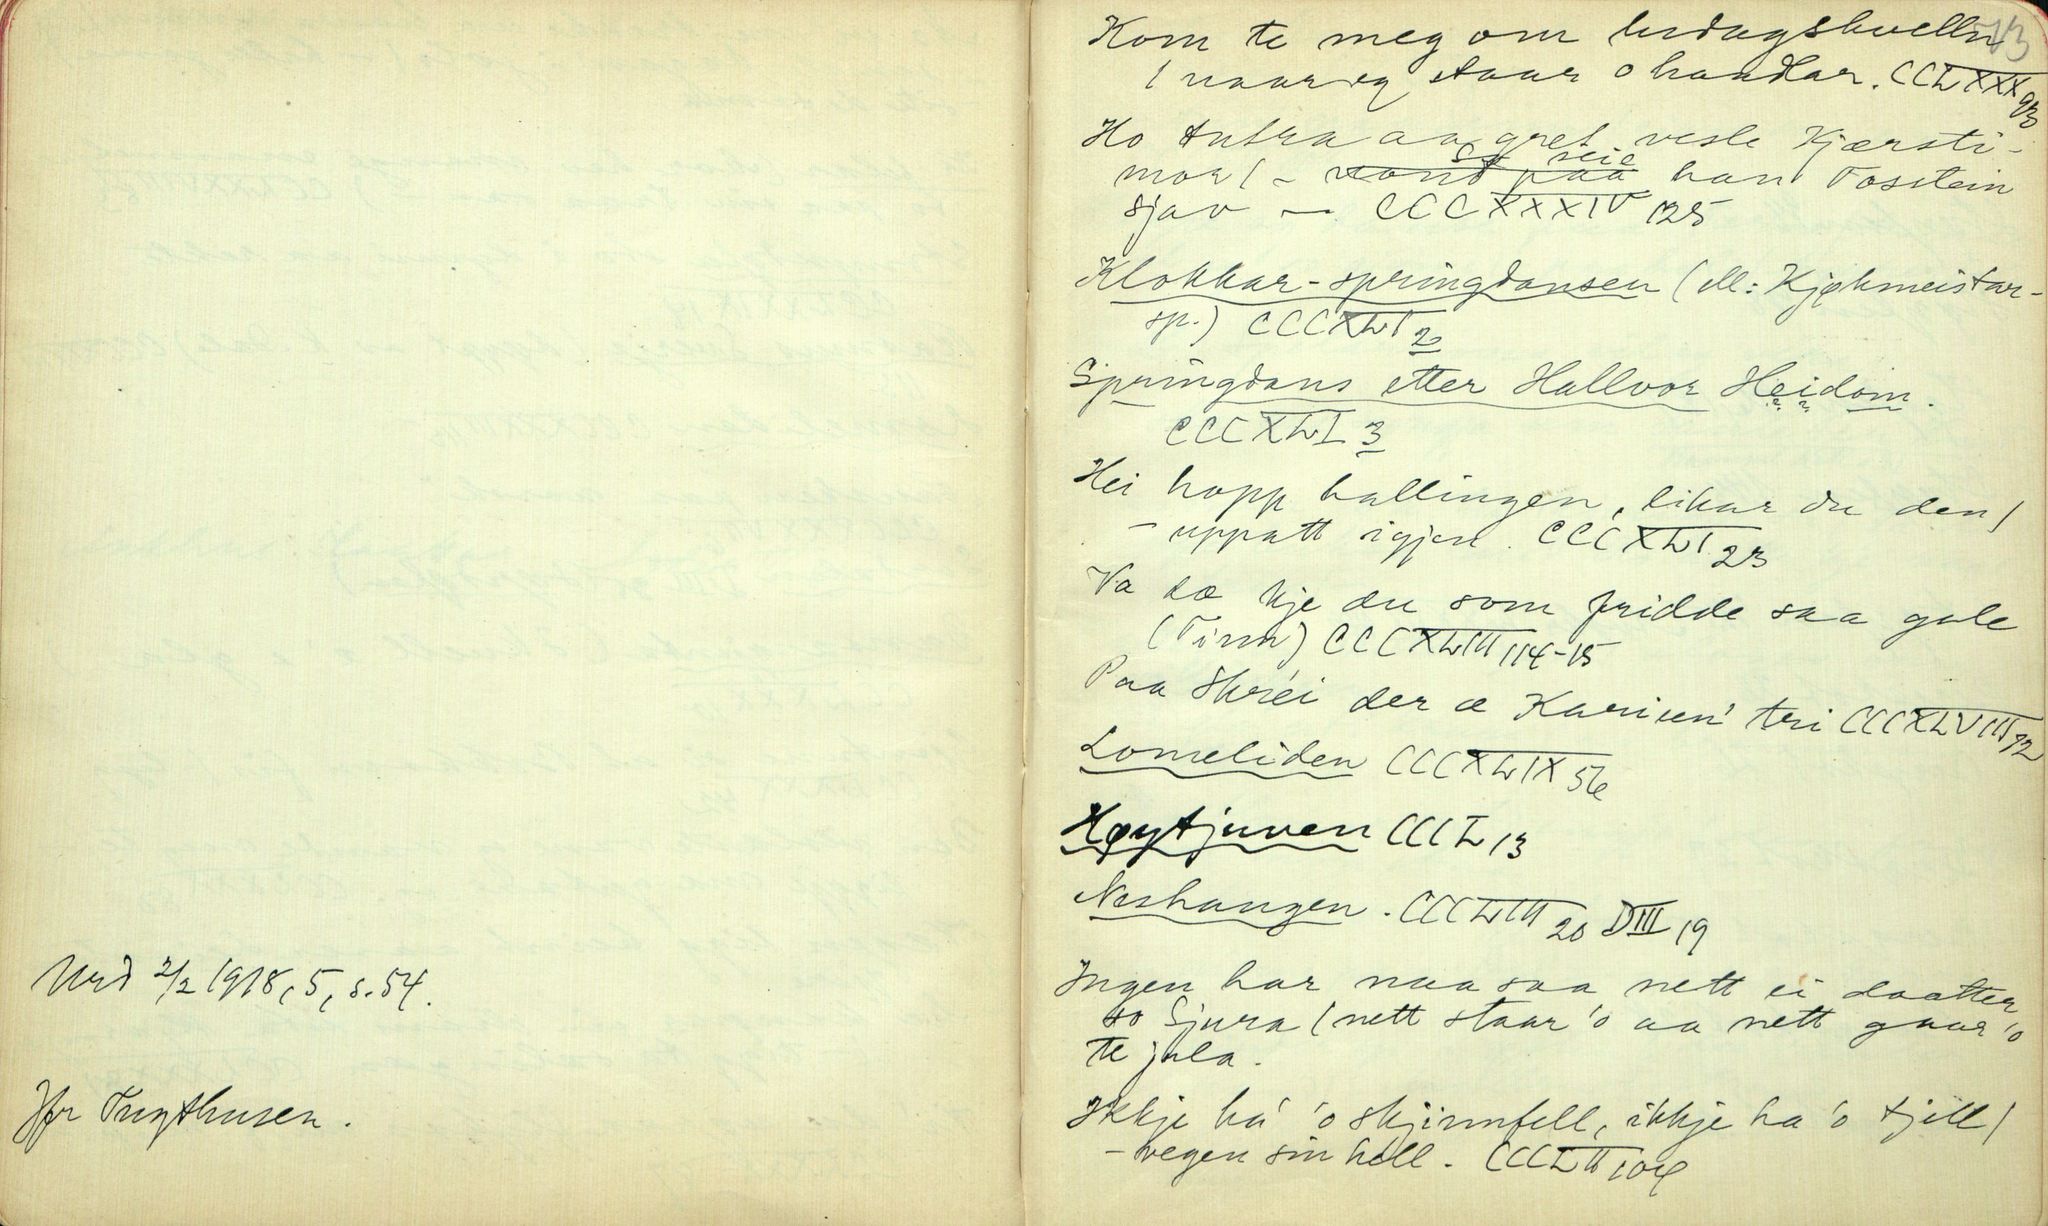 Urd 2/2 1918, 5, s. 54.
Jfr Tungthusen.
73
Kom te meg om lurdagskvelln
/ naar eg staar o handlar. CCLXXX 93
Ho tutra aa gret vesle Kjærsti-
mor / - so seie han Tostein
sjav — CCCXXXIV 125
Klokkar-springdansen (ell: Kjøkmeistar-
sp.) CCCXLI 2
Springdans etter Hallvor Heidom.
CCCXLI 3
Hei hopp hallingen, likar du den /
- uppatt igjen. CCCXLI 23
Va dæ kje du som fridde saa gale
(Tinn) CCCXLIII 114-15
Paa Skréi der æ Karien' tri CCCXLVIII 92
Lomeliden CCCXLIX 56
Høytjuven CCCL 13
Neshangen. CCCLIII 20 DIII 19
Ingen har naa saa nett ei daatter
so Sjura / nett staar 'o aa nett gaar 'o
te jula.
Ikkje há 'o skjinnfell, ikkje ha 'o tjell /
- vegen sin hell. CCCLII 104